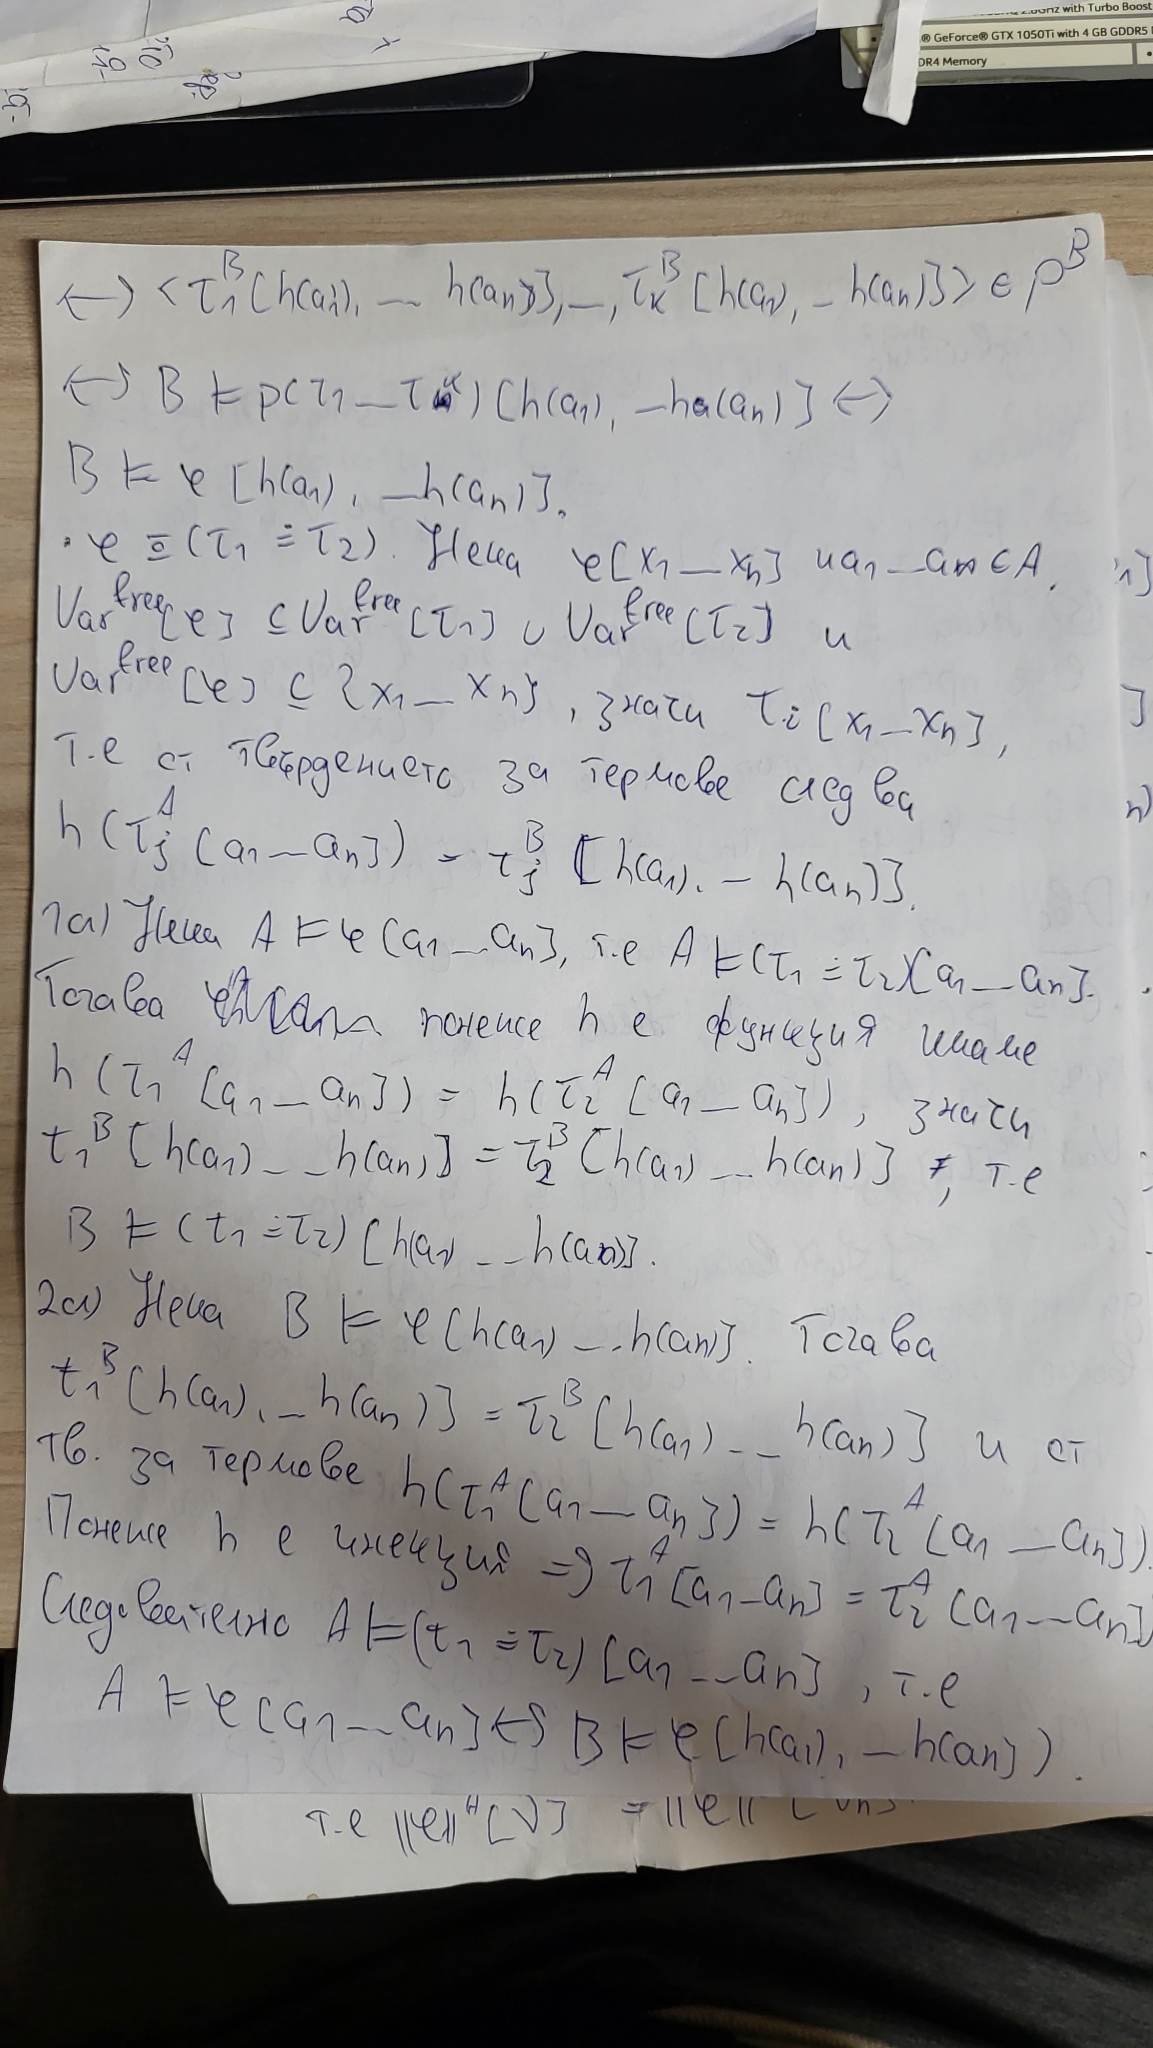 2.8GHz with Turbo Boost
® GeForce® GTX 1050Ti with 4 GB GDDR5
DR4 Memory
<-> <τ₁ᴮ[h(a₁), — h(an)], —, τₖᴮ[h(a₁), — h(an)]> ∈ pᴮ
<-> B ⊨ p(τ₁ — τₖ) [h(a₁), — h(an)] <->
B ⊨ φ [h(a₁), — h(an)].
· φ ≡ (τ₁ ≐ τ₂). Нека φ[x₁ — xn] и a₁ — an ∈ A.
Varᶠʳᵉᵉ[φ] ⊆ Varᶠʳᵉᵉ[τ₁] ∪ Varᶠʳᵉᵉ[τ₂] и
Varᶠʳᵉᵉ[φ] ⊆ {x₁ — xn}, значи τi[x₁ — xn],
т.е от твърдението за термове следва
h(τjᴬ[a₁ — an]) = τjᴮ [h(a₁), — h(an)].
1а) Нека A ⊨ φ[a₁ — an], т.е A ⊨ (τ₁ ≐ τ₂)[a₁ — an].
Тогава понеже h е функция имаме
h(τ₁ᴬ[a₁ — an]) = h(τ₂ᴬ[a₁ — an]), значи
τ₁ᴮ[h(a₁) -- h(an)] = τ₂ᴮ[h(a₁) -- h(an)], т.е
B ⊨ (τ₁ ≐ τ₂) [h(a₁) -- h(an)].
2а) Нека B ⊨ φ[h(a₁) -- h(an)]. Тогава
τ₁ᴮ[h(a₁), — h(an)] = τ₂ᴮ[h(a₁) -- h(an)] и от
тв. за термове h(τ₁ᴬ[a₁ — an]) = h(τ₂ᴬ[a₁ — an]).
Понеже h е инекция => τ₁ᴬ[a₁ — an] = τ₂ᴬ[a₁ — an]
Следователно A ⊨ (τ₁ ≐ τ₂) [a₁ -- an], т.е
A ⊨ φ[a₁ — an] <-> B ⊨ φ[h(a₁), — h(an)].
т.е ||φ||ᴬ[v] = ||φ||